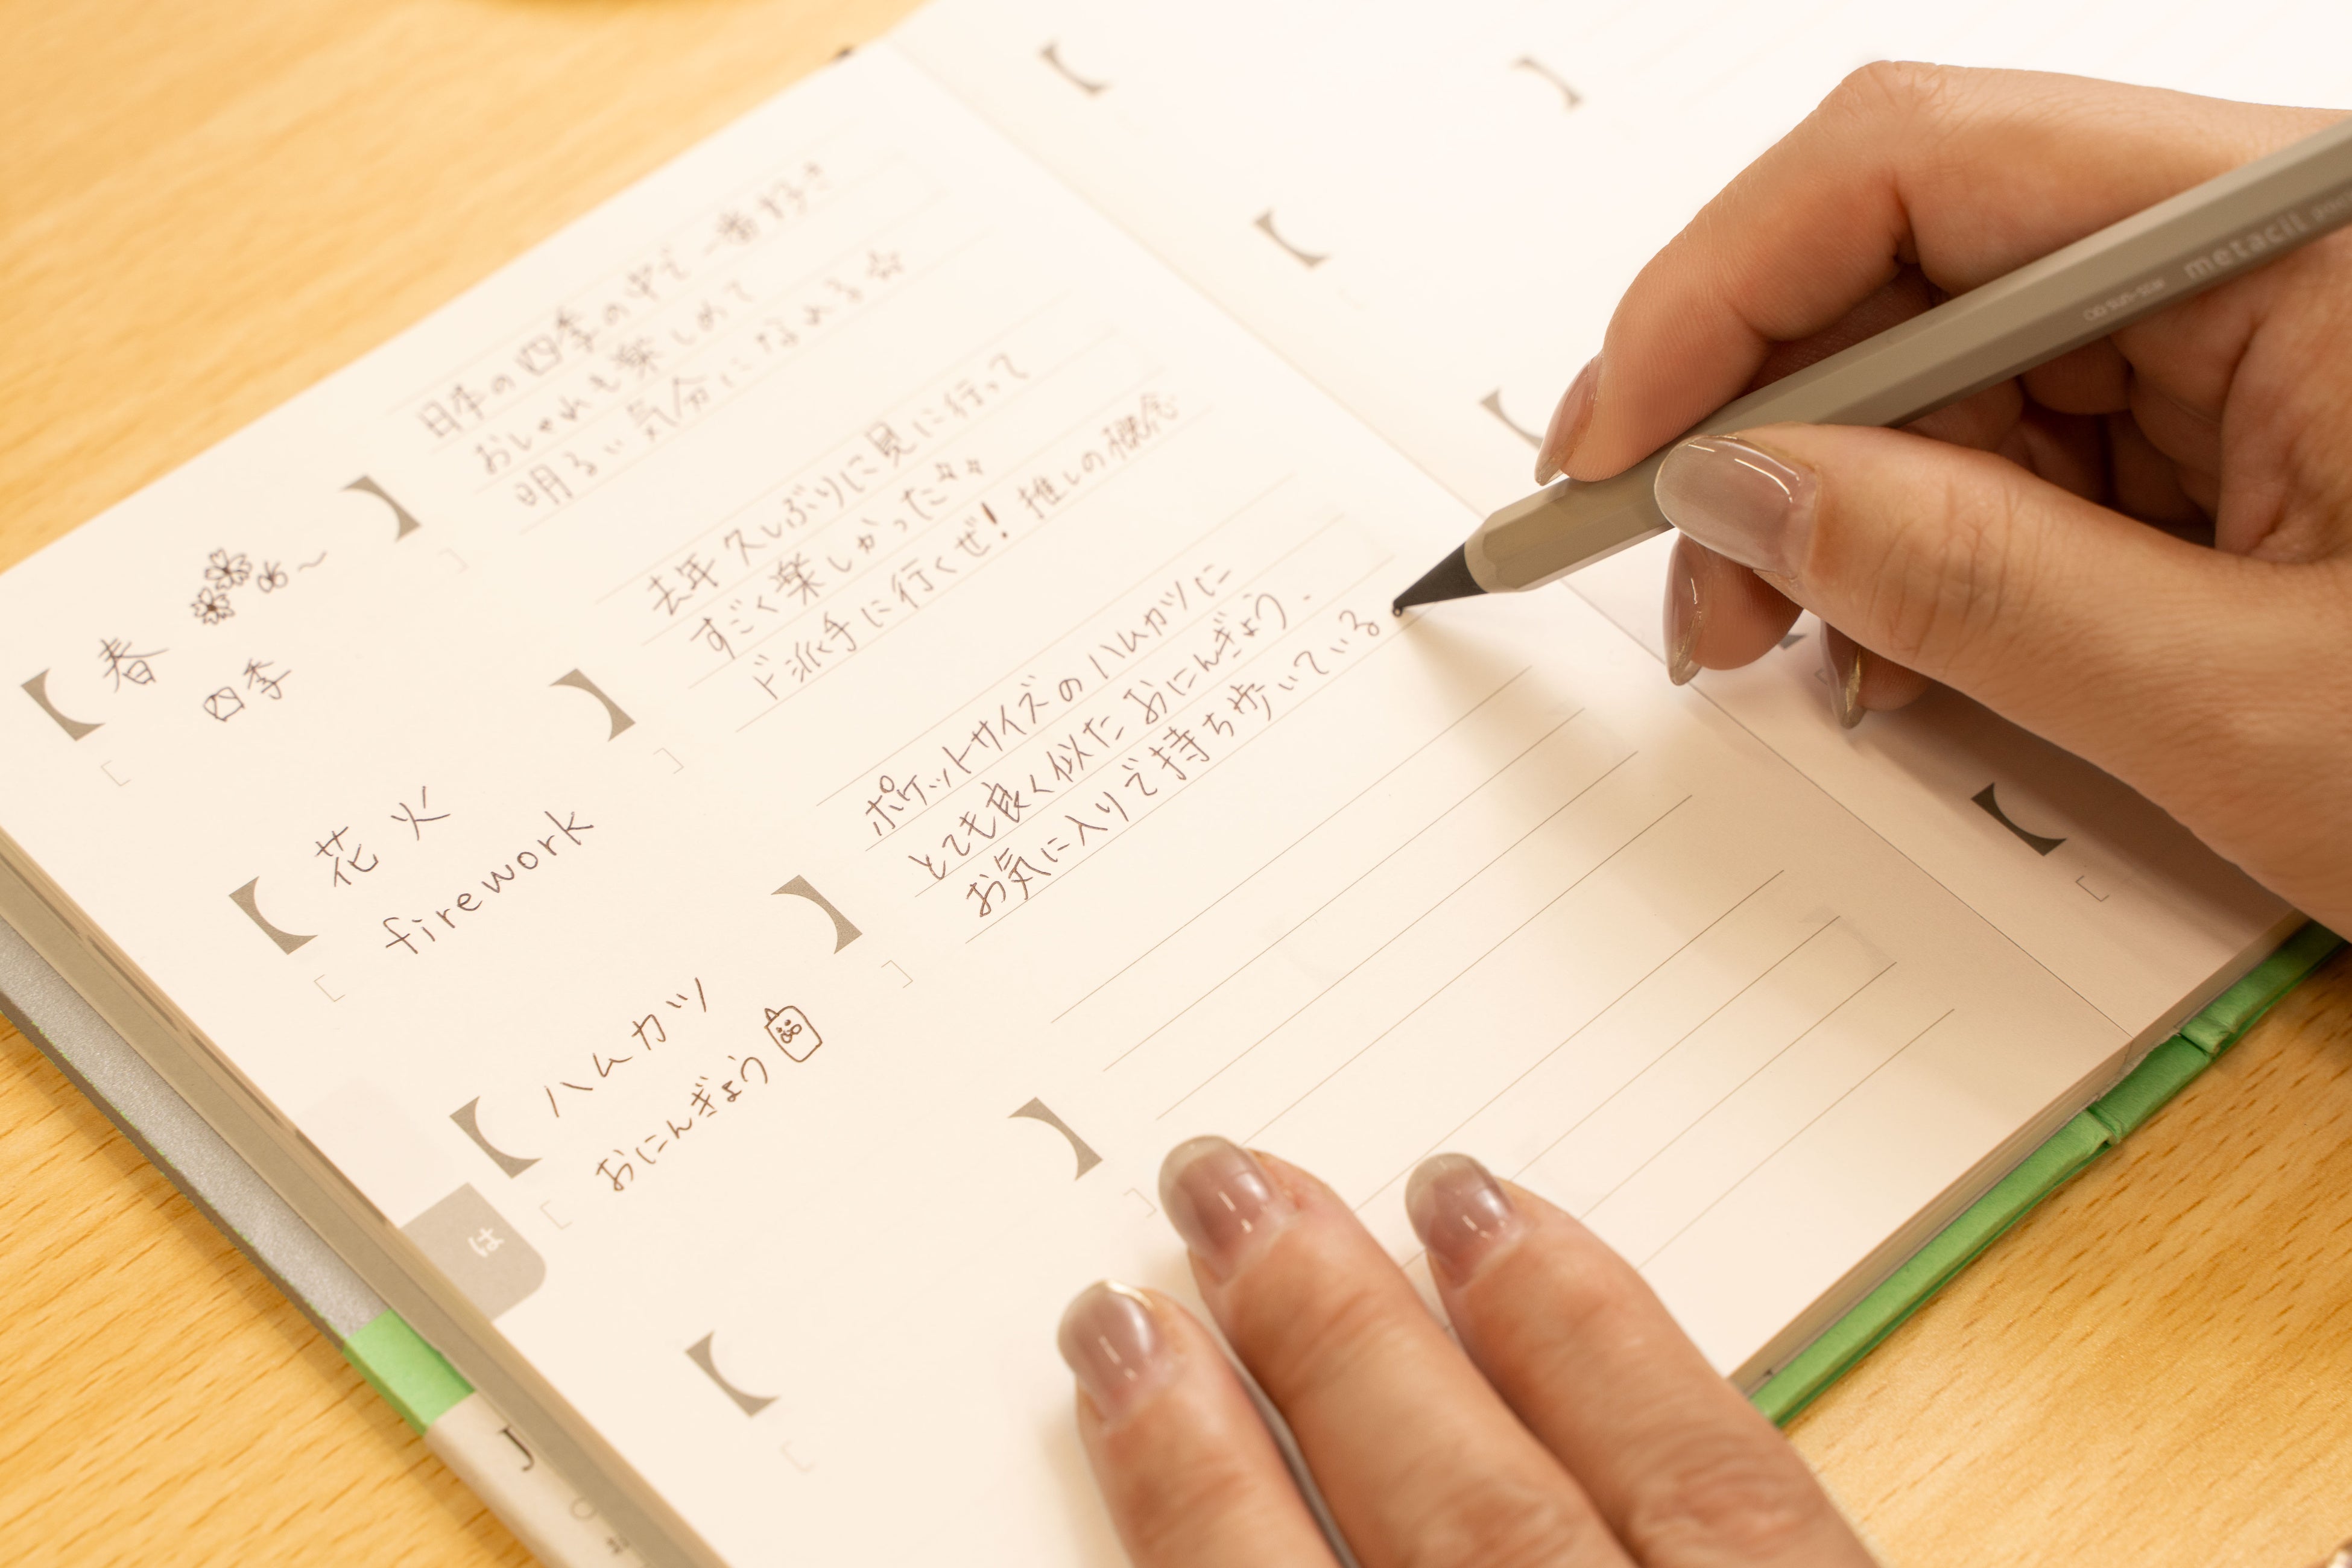 【春】
四季
日本の四季の中で一番好き
おしゃれも楽しめて
明るい気分になれる☆
【花火】
firework
去年久しぶりに見に行って
すごく楽しかった
ド派手に行くぜ！推しの概念
【ハムカツ】
おにんぎょう
ポケットサイズのハムカツに
とても良く似たおにんぎょう.
お気に入りで持ち歩いている
は
J
metacil